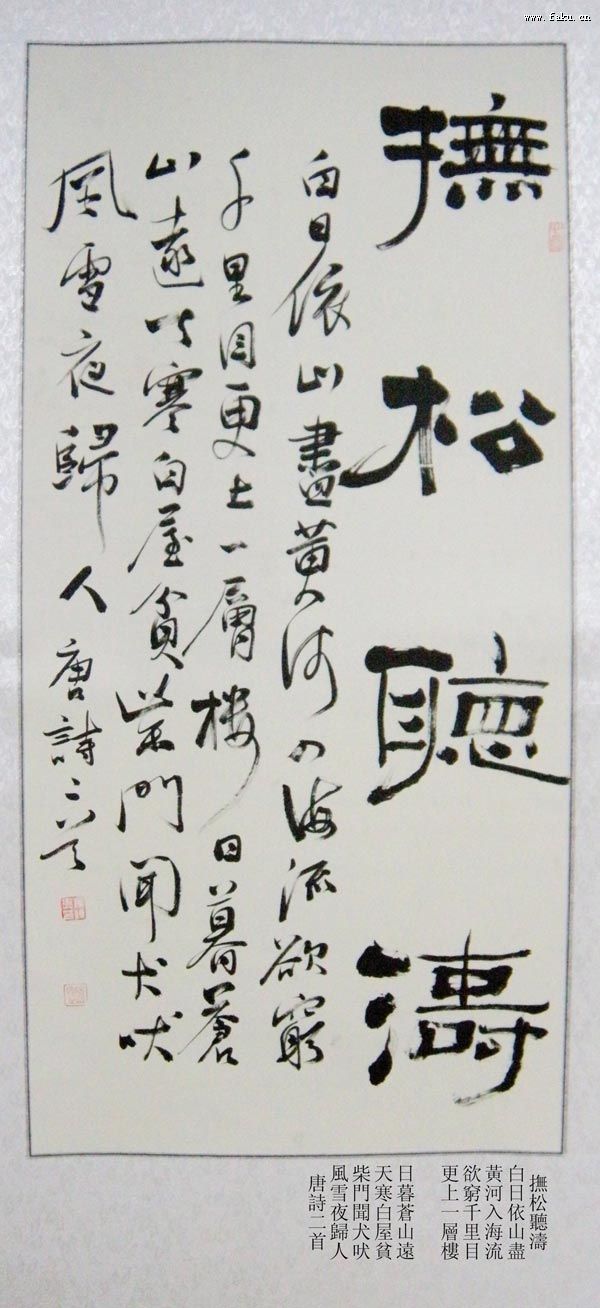 www.faku.cn
撫松聽濤
白日依山盡黃河入海流欲窮
千里目更上一層樓 日暮蒼
山遠天寒白屋貧柴門聞犬吠
風雪夜歸人 唐詩二首
撫松聽濤
白日依山盡
黃河入海流
欲窮千里目
更上一層樓
日暮蒼山遠
天寒白屋貧
柴門聞犬吠
風雪夜歸人
唐詩二首